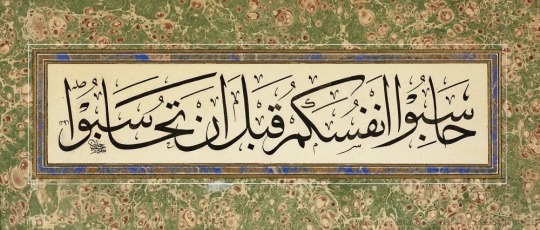 حَاسِبُوْا اَنفُسَكُمْ قَبلَ اَنْ تُحَاسَبُوْا